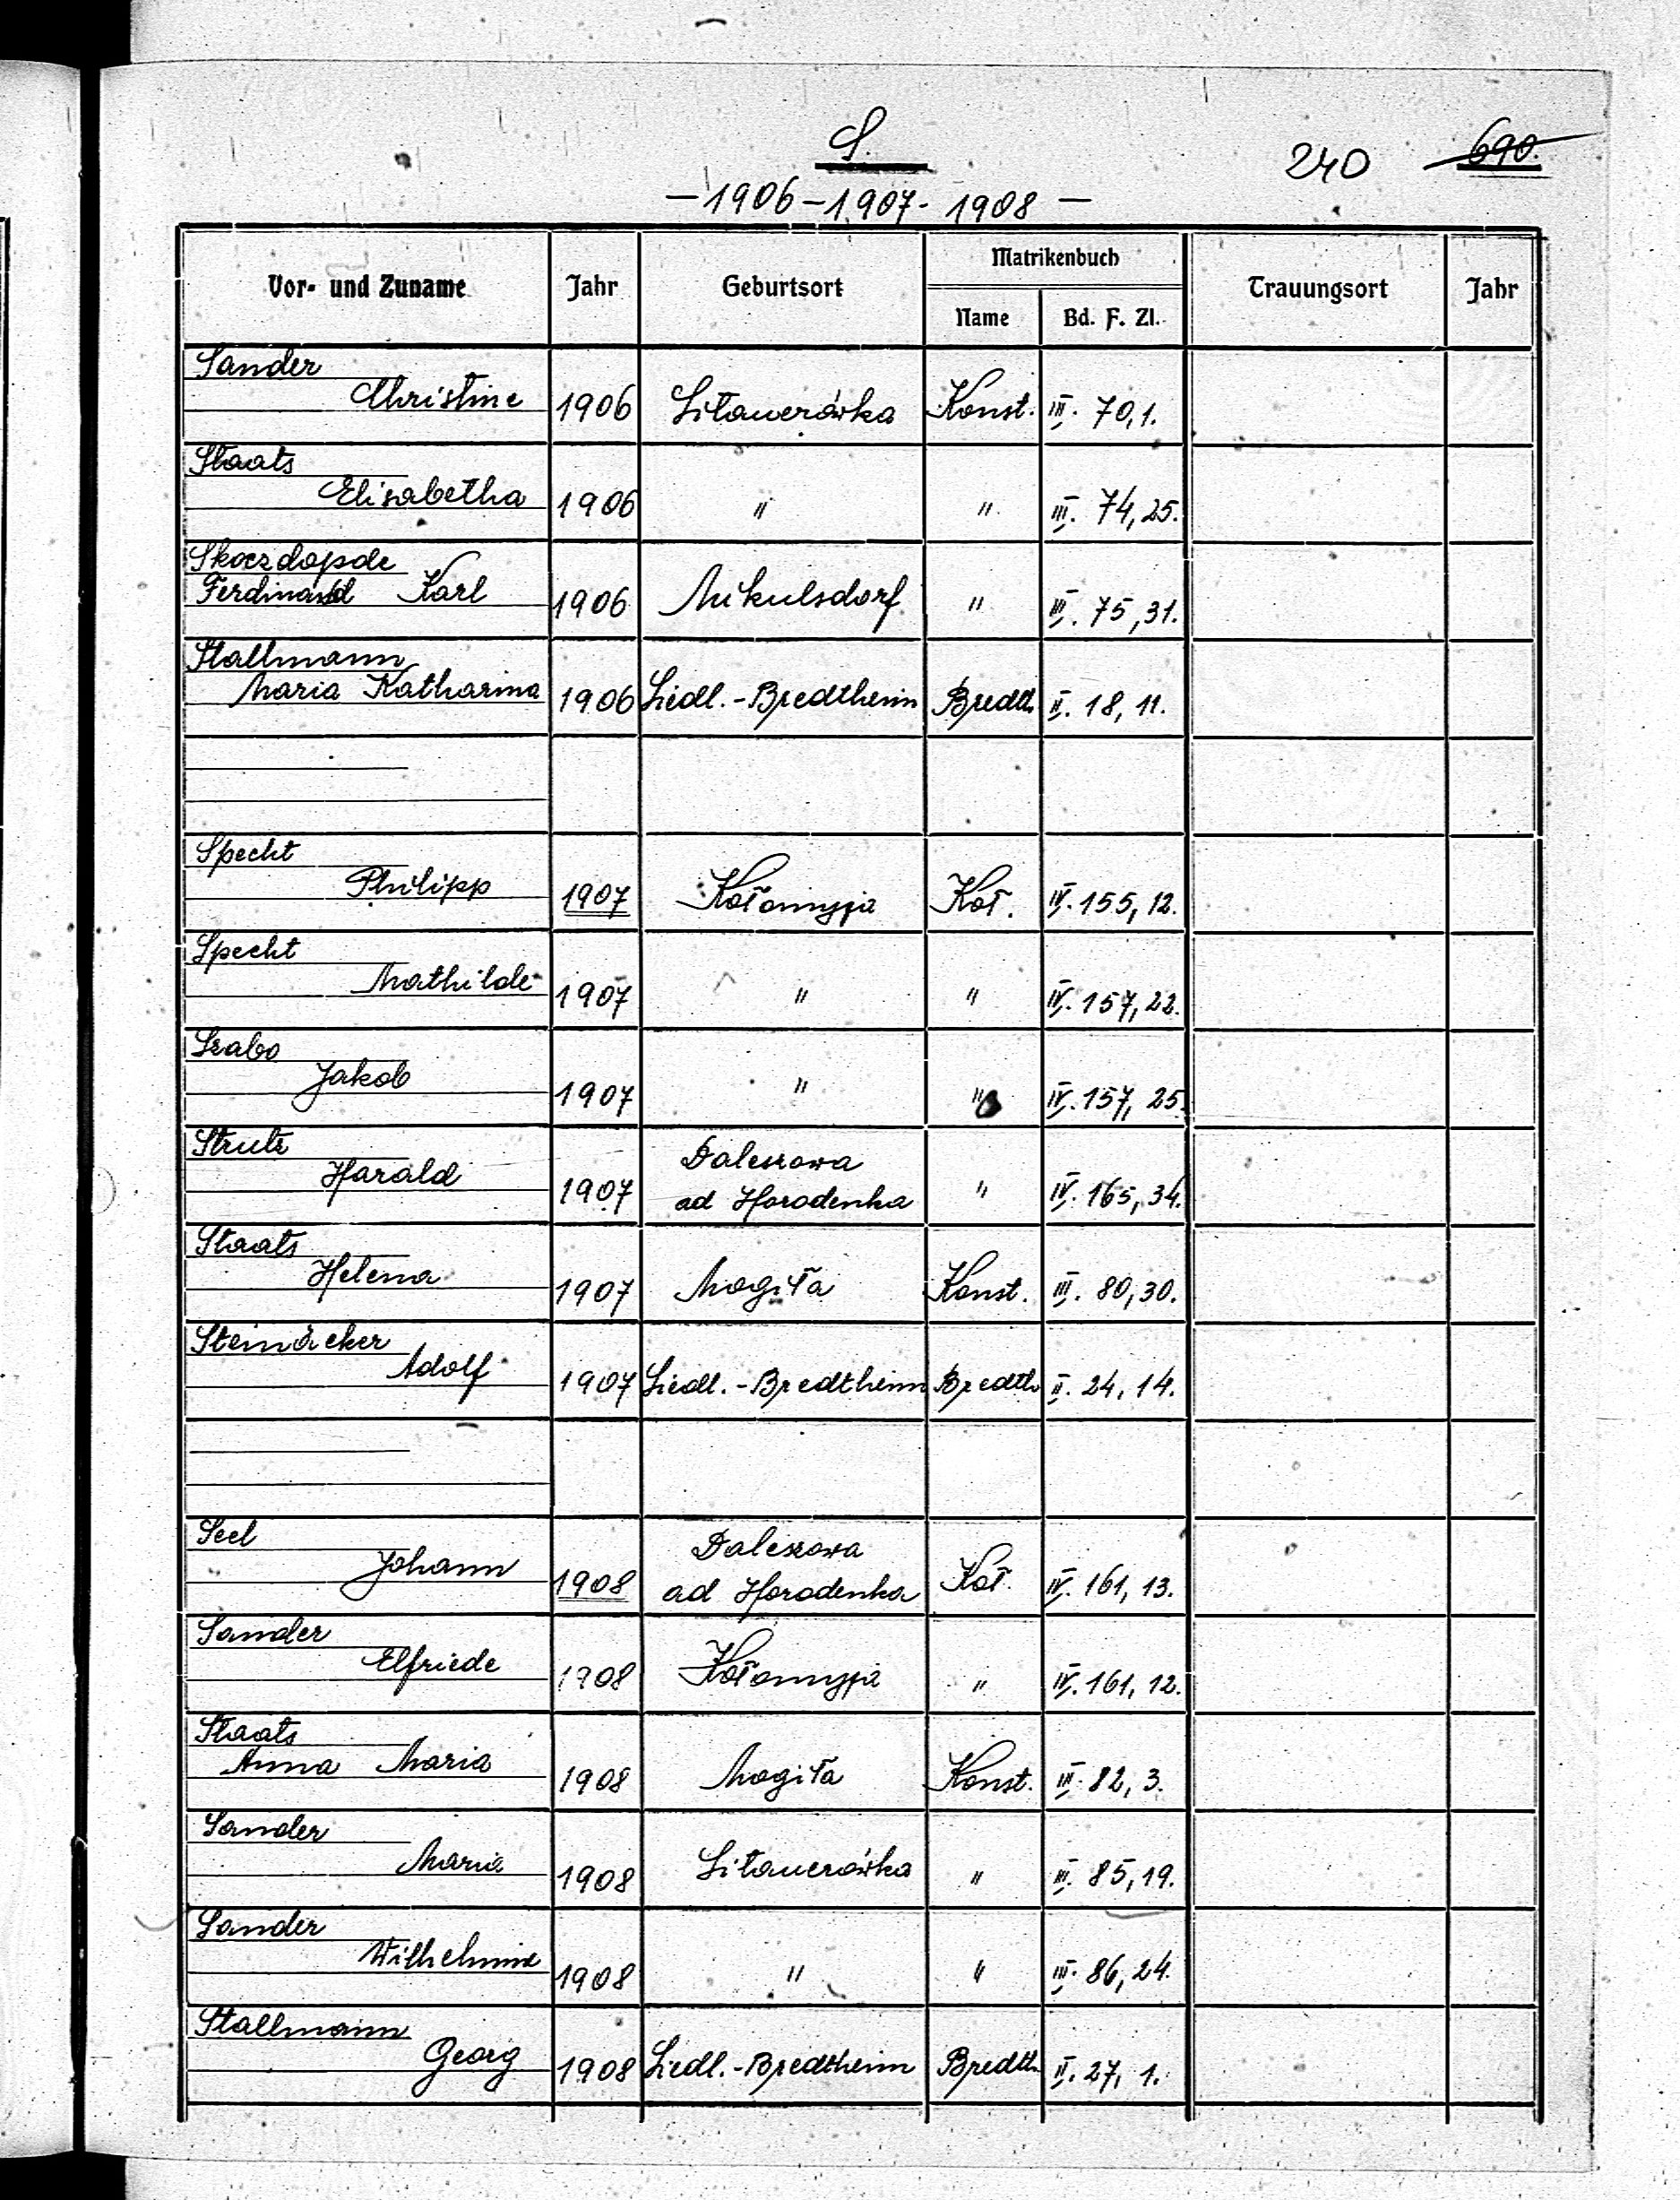 S.
240 690.
— 1906 – 1907 - 1908 —
Vor- und Zuname Jahr Geburtsort Matrikenbuch Trauungsort Jahr
Name Bd. F. Zl.
Sander
Christine 1906 Sitauerówka Konst. III. 70,1.
Staats
Elisabetha 1906 " " III. 74,25.
Skoczdopde
Ferdinand Karl 1906 Mikulsdorf " III. 75,31.
Stallmann
Maria Katharina 1906 Siedl.-Bredtheim Bredth. II. 18, 11.
Specht
Philipp 1907 Kołomyja Koł. IV. 155, 12.
Specht
Mathilde 1907 " " IV. 157, 22.
Szabo
Jakob 1907 " " IV. 157, 25.
Strutz
Harald 1907 Daleszowa
ad Horodenka " IV. 165, 34.
Staats
Helena 1907 Mogiła Konst. III. 80, 30.
Steinäcker
Adolf 1907 Siedl.-Bredtheim Bredth. II. 24, 14.
Seel
Johann 1908 Daleszowa
ad Horodenka Koł. IV. 161, 13.
Sander
Elfriede 1908 Kołomyja " IV. 161, 12.
Staats
Anna Maria 1908 Mogiła Konst. III. 82, 3.
Sander
Maria 1908 Sitauerówka " III. 85, 19.
Sander
Wilhelmine 1908 " " III. 86, 24.
Stallmann
Georg 1908 Siedl.-Bredtheim Bredth. II. 27, 1.